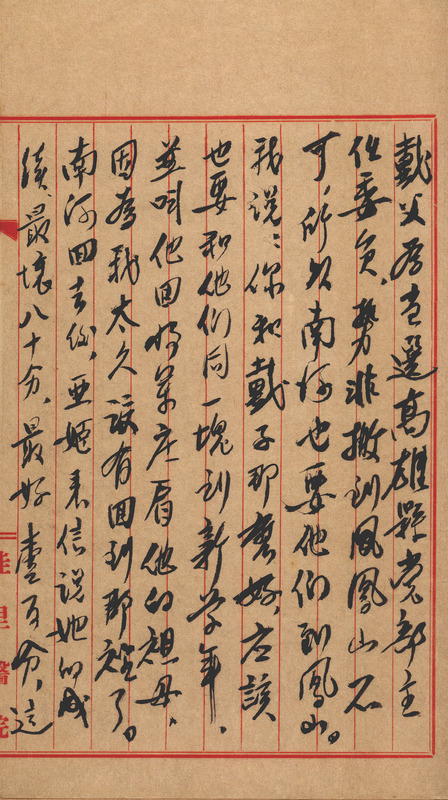 戴父為當選高雄縣黨部主
任委員,勢非搬到鳳鳳山不
可,所以南河也要他們到鳳山。
我說:你和戴子那麼好,应該
也要和他們同一塊到新学年,
並叫他回將軍庄看他的祖母,
因為我太久沒有回到那裡了。
南河回去後,亜姬来信說她的成
績,最壞八十分,最好壹百分,這
佳里醫院